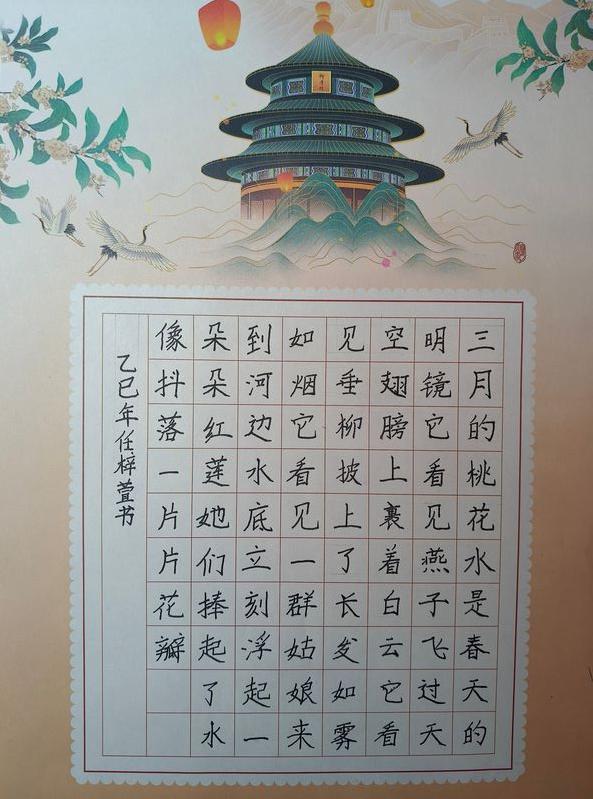 三月的桃花水是春天的
明镜它看见燕子飞过天
空翅膀上裹着白云它看
见垂柳披上了长发如雾
如烟它看见一群姑娘来
到河边水底立刻浮起一
朵朵红莲她们捧起了水
像抖落一片片花瓣
乙巳年任梓萱书